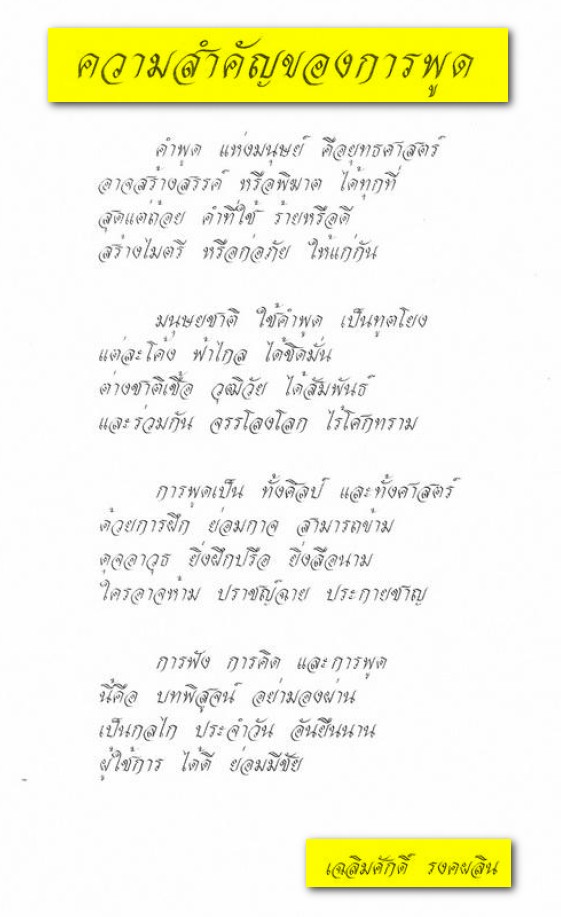 ความสำคัญของการพูด
คำพูด แห่งมนุษย์ คือยุทธศาสตร์
อาจสร้างสรรค์ หรือพิฆาต ได้ทุกที่
สุดแต่ถ้อย คำที่ใช้ ร้ายหรือดี
สร้างไมตรี หรือก่อภัย ให้แก่กัน
มนุษยชาติ ใช้คำพูด เป็นทูตโยง
แต่ละโค้ง ฟ้าไกล ได้ชิดมั่น
ต่างชาติเชื้อ วุฒิวัย ได้สัมพันธ์
และร่วมกัน จรรโลงโลก ไร้โศกทราม
การพูดเป็น ทั้งศิลป์ และทั้งศาสตร์
ด้วยการฝึก ย่อมกาจ สามารถข้าม
ดุจอาวุธ ยิ่งฝึกปรือ ยิ่งลือนาม
ใครอาจห้าม ปราชญ์ฉาย ประกายชาญ
การฟัง การคิด และการพูด
นี้คือ บทพิสูจน์ อย่ามองผ่าน
เป็นกลไก ประจำวัน อันยืนนาน
ผู้ใช้การ ได้ดี ย่อมมีชัย
เฉลิมศักดิ์ รงคผลิน